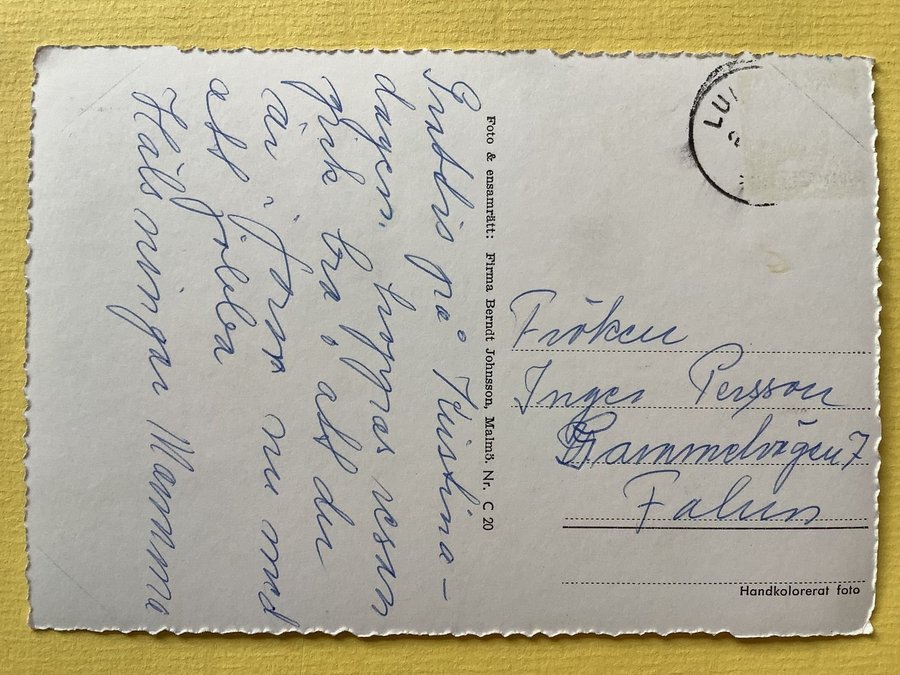 Grattis på Kristina-
dagen, hoppas resan
gick bra, att du
är i form nu med
att jobba
Hälsningar Mamma
Foto & ensamrätt: Firma Berndt Johnsson, Malmö. Nr. C 20
LU
Fröken
Inger Persson
7
Falun
Handkolorerat foto